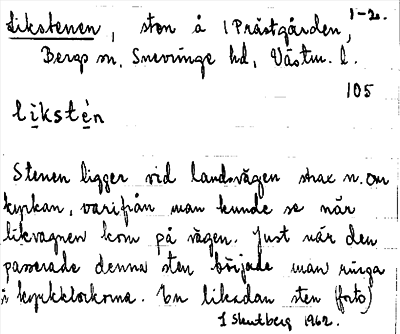 Likstenen, sten å 1 Prästgården, 1-20.
Bergs sn, Snevringe hd, Västm. l.
105
likstén
Stenen ligger vid landsvägen strax n. om
kyrkan, varifrån man kunde se när
likvagnen kom på vägen. Just när den
passerade denna sten började man ringa
i kyrkklockorna. En likadan sten (forts)
1962.